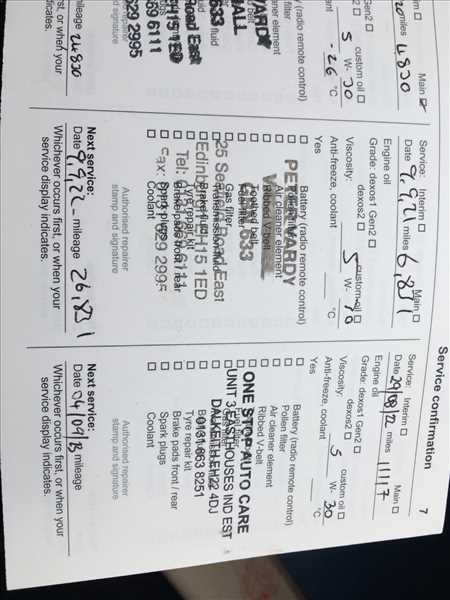 Service confirmation 7
Main
miles 4830
Gen2
custom oil
5 W- 30
coolant -26 °C
(radio remote control)
filter
fluid
Road East
H15 1ED
69 6111
629 2995
mileage 24830
rst, or when your
dicates.
Service: Interim Main
Date 9,9,21 miles 16,831
Engine oil
Grade: dexos1 Gen2
dexos2 custom oil
Viscosity: 5 W-
Anti-freeze, coolant °C
Yes
Battery (radio remote control)
Air cleaner element
Ribbed V-belt
Toothed belt
Gas filter
Brake fluid
Tyre repair kit
Brake pads front / rear
Spark plugs
Coolant
PETER VARDY
25 Seafield Road East
Edinburgh EH15 1ED
Tel: 0131 669 6111
Fax: 0131 629 2995
Authorised repairer
stamp and signature
Next service:
Date 9,9,22 mileage 26,831
Whichever occurs first, or when your
service display indicates.
Service: Interim Main
Date 29/08/22 miles 11117
Engine oil
Grade: dexos1 Gen2
dexos2 custom oil
Viscosity: 5 W- 30
Anti-freeze, coolant °C
Yes
Battery (radio remote control)
Pollen filter
Air cleaner element
Ribbed V-belt
Tyre repair kit
Brake pads front / rear
Spark plugs
Coolant
ONE STOP AUTO CARE
UNIT 3 EASTHOUSES IND EST
DALKEITH EH22 4DJ
0131 663 8251
Authorised repairer
stamp and signature
Next service:
Date mileage
Whichever occurs first, or when your
service display indicates.